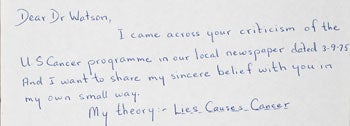 Dear Dr Watson,
I came across your criticism of the
U S Cancer programme in our local newspaper dated 3-9-75
And I want to share my sincere belief with you in
my own small way.
My theory:- Lies Causes Cancer